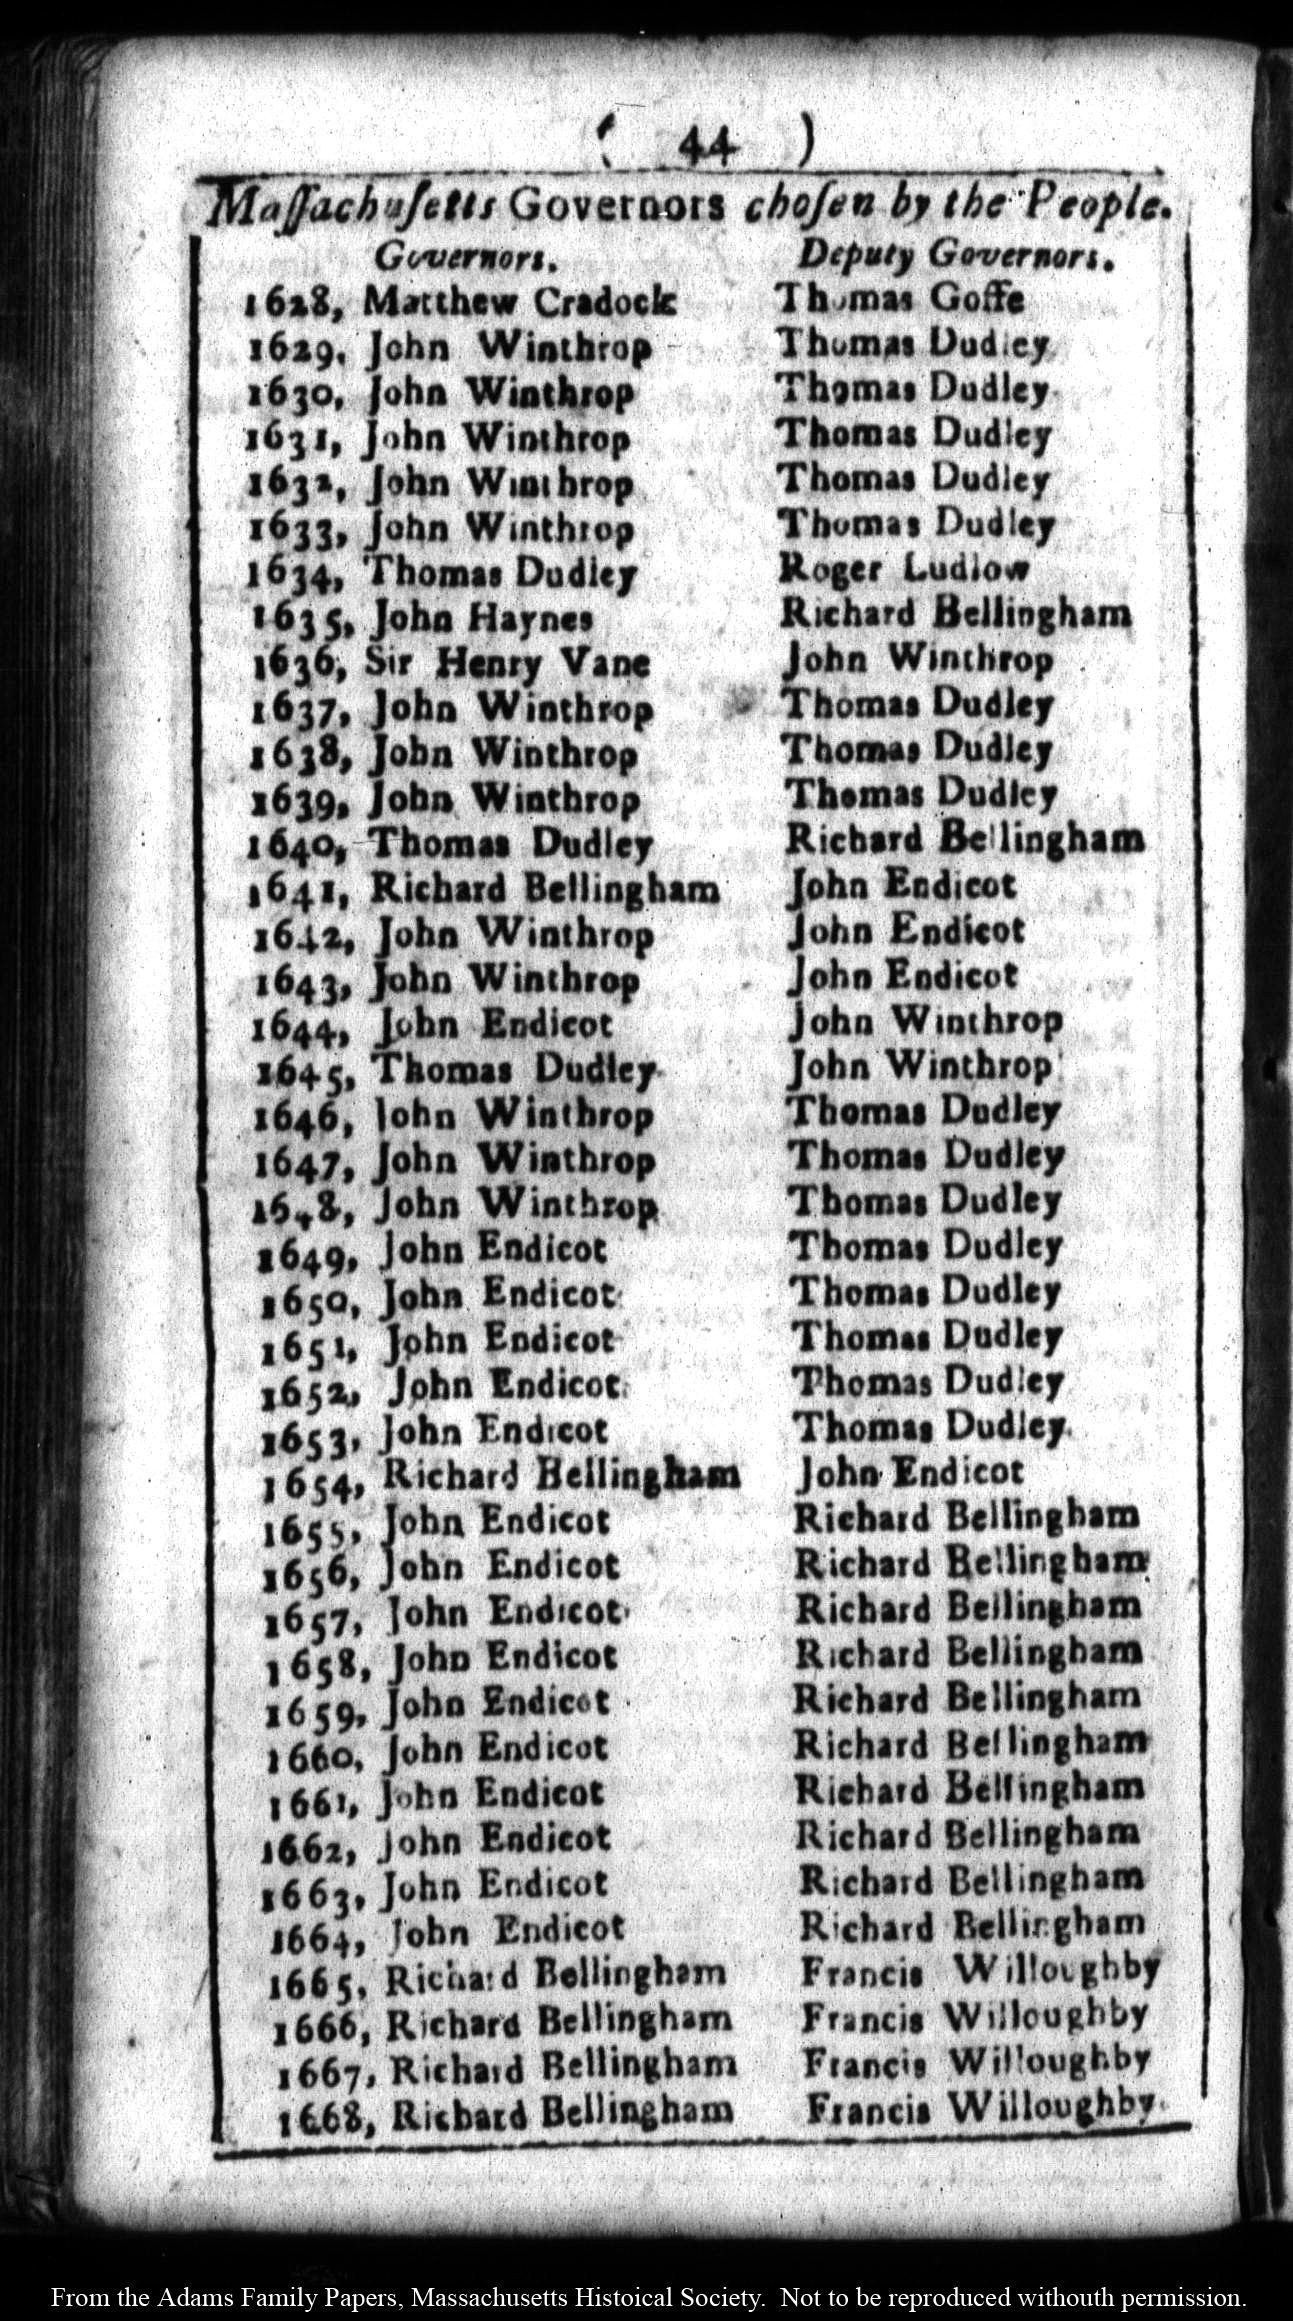 ( 44 )
Maſſachuſetts Governors choſen by the People.
Governors. Deputy Governors.
1628, Matthew Cradock Thomas Goffe
1629, John Winthrop Thomas Dudley
1630, John Winthrop Thomas Dudley
1631, John Winthrop Thomas Dudley
1632, John Winthrop Thomas Dudley
1633, John Winthrop Thomas Dudley
1634, Thomas Dudley Roger Ludlow
1635, John Haynes Richard Bellingham
1636, Sir Henry Vane John Winthrop
1637, John Winthrop Thomas Dudley
1638, John Winthrop Thomas Dudley
1639, John Winthrop Thomas Dudley
1640, Thomas Dudley Richard Bellingham
1641, Richard Bellingham John Endicot
1642, John Winthrop John Endicot
1643, John Winthrop John Endicot
1644, John Endicot John Winthrop
1645, Thomas Dudley John Winthrop
1646, John Winthrop Thomas Dudley
1647, John Winthrop Thomas Dudley
1648, John Winthrop Thomas Dudley
1649, John Endicot Thomas Dudley
1650, John Endicot Thomas Dudley
1651, John Endicot Thomas Dudley
1652, John Endicot Thomas Dudley
1653, John Endicot Thomas Dudley
1654, Richard Bellingham John Endicot
1655, John Endicot Richard Bellingham
1656, John Endicot Richard Bellingham
1657, John Endicot Richard Bellingham
1658, John Endicot Richard Bellingham
1659, John Endicot Richard Bellingham
1660, John Endicot Richard Bellingham
1661, John Endicot Richard Bellingham
1662, John Endicot Richard Bellingham
1663, John Endicot Richard Bellingham
1664, John Endicot Richard Bellingham
1665, Richard Bellingham Francis Willoughby
1666, Richard Bellingham Francis Willoughby
1667, Richard Bellingham Francis Willoughby
1668, Richard Bellingham Francis Willoughby
From the Adams Family Papers, Massachusetts Histoical Society. Not to be reproduced withouth permission.